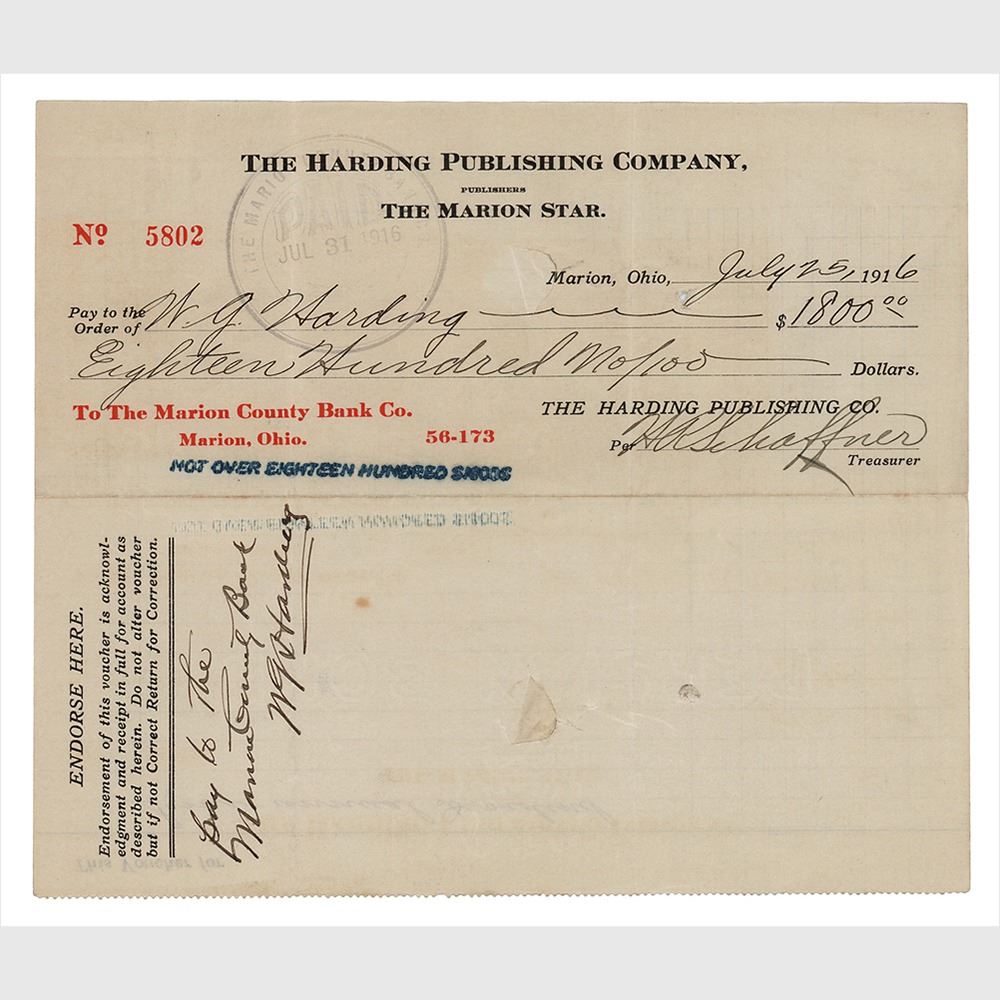 THE HARDING PUBLISHING COMPANY,
PUBLISHERS
THE MARION STAR.
THE MARION
PAID
JUL 31 1916
Nº 5802
Marion, Ohio, July 25, 1916
Pay to the
Order of W. G. Harding $1800 00
Eighteen Hundred No/100 Dollars.
To The Marion County Bank Co.
Marion, Ohio. 56-173
THE HARDING PUBLISHING CO.
Per H A Schaffner
Treasurer
NOT OVER EIGHTEEN HUNDRED
ENDORSE HERE.
Endorsement of this voucher is acknowl-
edgment and receipt in full for account as
described herein. Do not alter voucher
but if not Correct Return for Correction.
Pay to The
Marion County Bank
W G Harding
This Voucher for